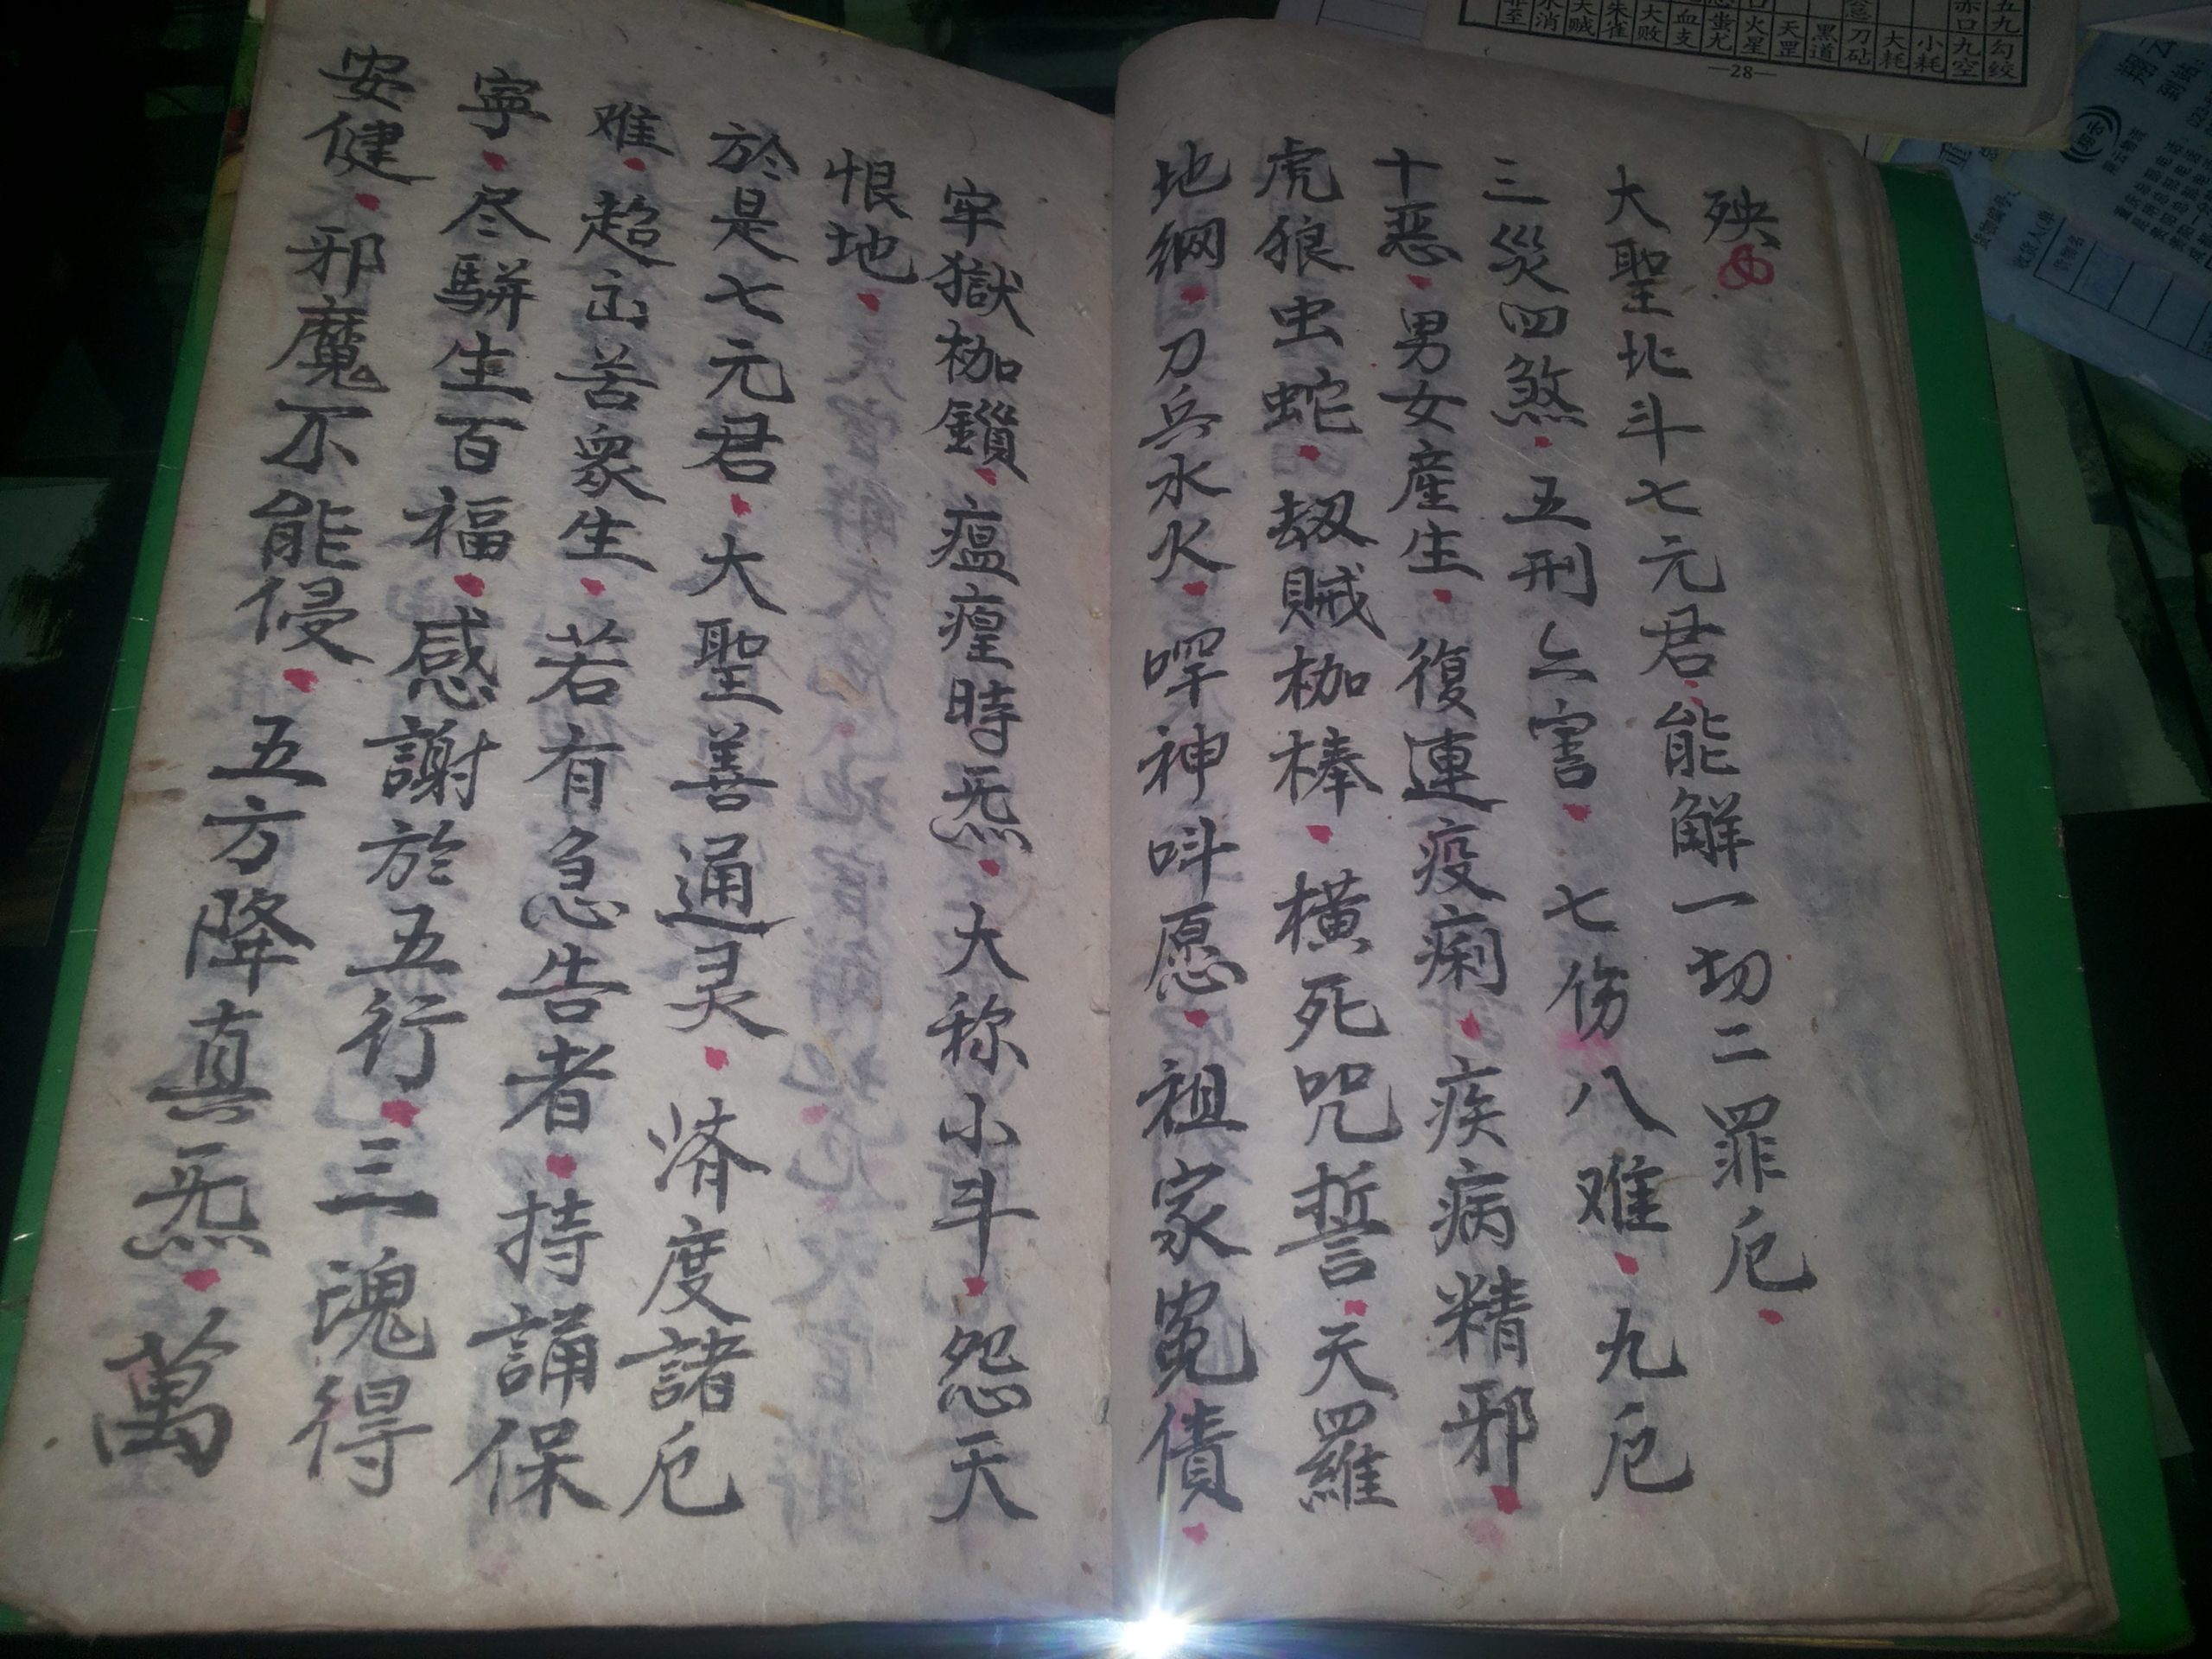 殃
大聖北斗七元君能觧一切二罪厄
三災四煞五刑六害七伤八难九厄
十惡男女産生復連疫痢疾病精邪
虎狼虫蛇劾賊枷棒橫死咒誓天羅
地網刀兵水火嘽神呌愿祖家冤債
牢獄枷鎖瘟瘟時炁大称小斗怨天
恨地
於是七元君大聖善通灵済度諸厄
难超出苦眾生若有急告者持誦保
寧尽駢生百福感謝於五行三魂得
安健邪魔不能侵五方降真炁萬
—28—